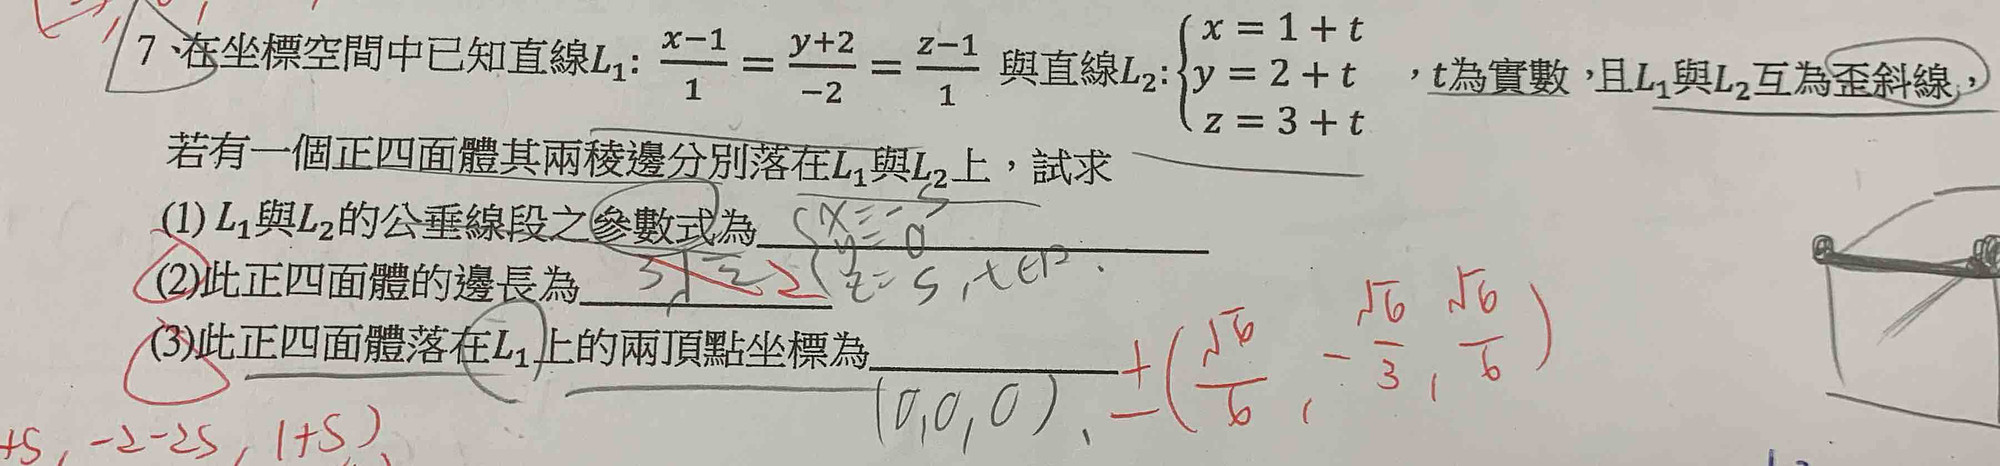 7、在坐標空間中已知直線L₁: (x−1)/1 = (y+2)/−2 = (z−1)/1 與直線L₂:{x = 1 + t, y = 2 + t, z = 3 + t ，t為實數，且L₁與L₂互為歪斜線，
若有一個正四面體其兩稜邊分別落在L₁與L₂上，試求
(1) L₁與L₂的公垂線段之參數式為 {x = -s, y = 0, z = s, t∈R.
(2)此正四面體的邊長為 2
(3)此正四面體落在L₁上的兩頂點坐標為 ±(√6/6, -√6/3, √6/6)
(0,0,0)、
+s, -2-2s, 1+s)